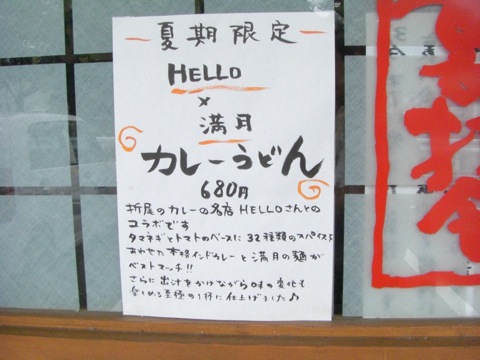 夏期限定
HELLO
×
満月
カレーうどん
680円
折尾のカレーの名店HELLOさんとの
コラボです
タマネギとトマトのベースに32種類のスパイスを
あわせた本格インドカレーと満月の麺が
ベストマッチ!!
さらに出汁をかけながら味の変化も
楽しめる至極の1杯に仕上げました♪